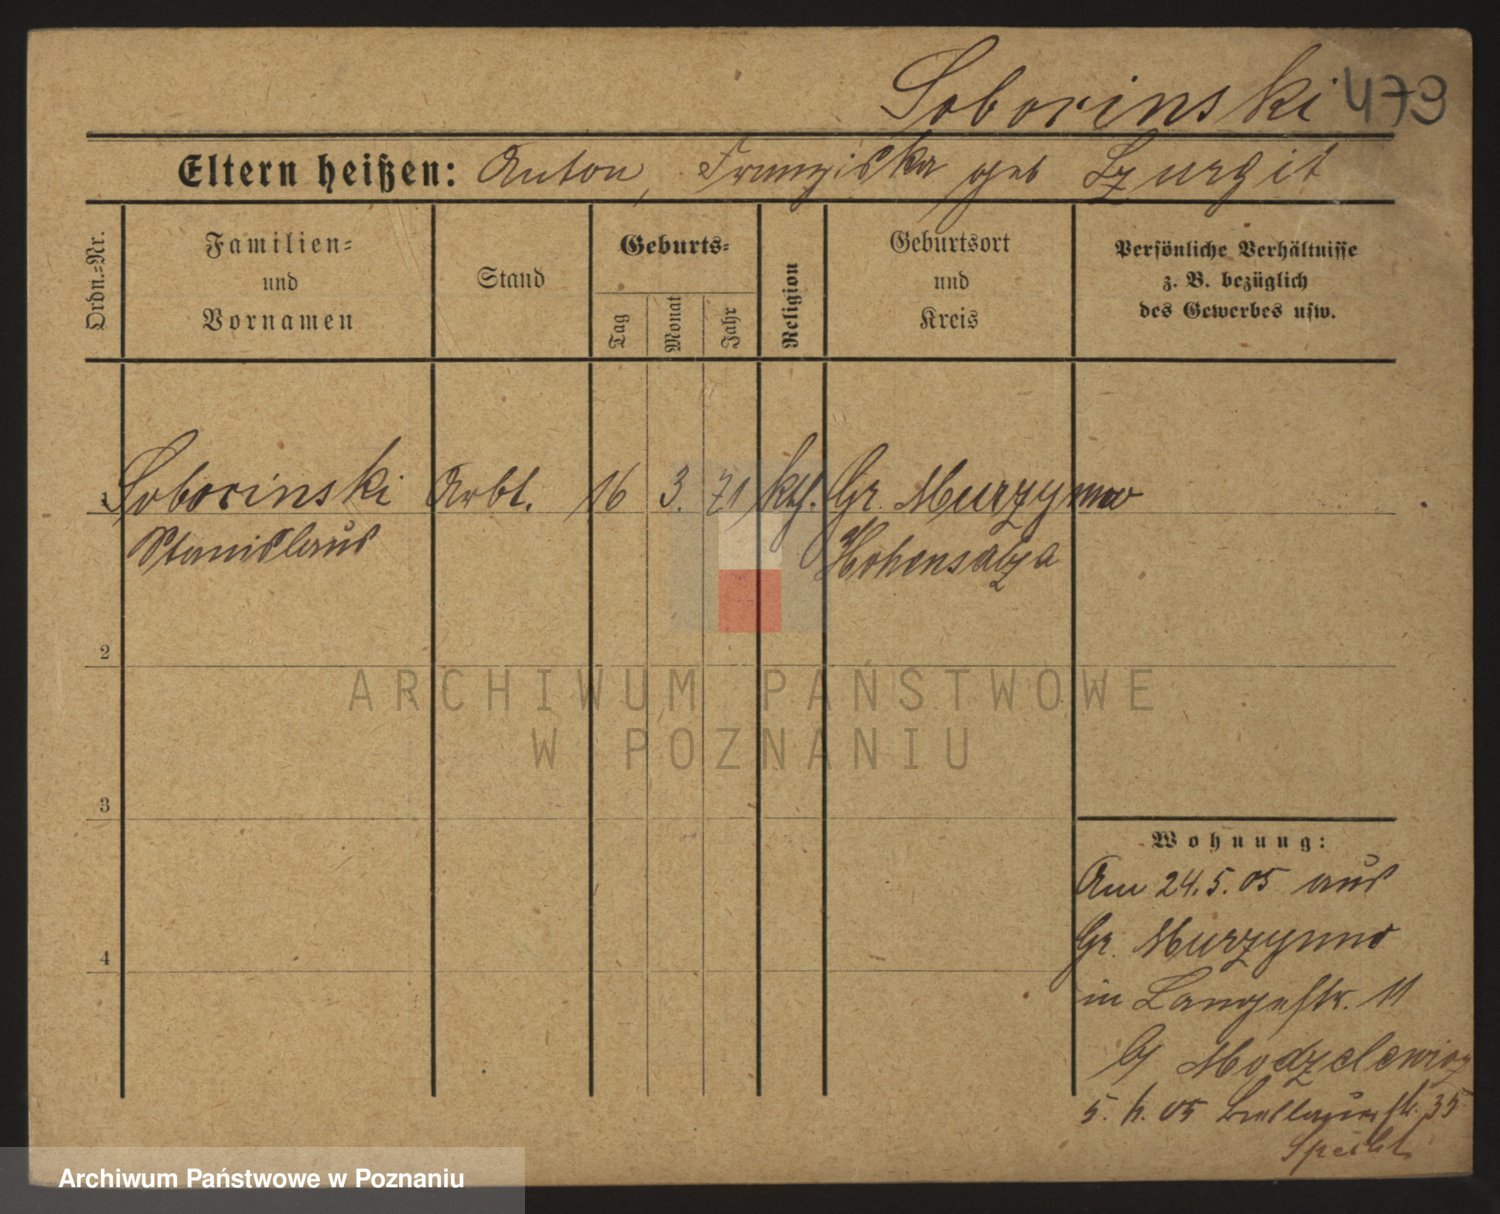 Soborinski 473
Eltern heißen: Anton, Franziska geb Szurgit
Ordn.-Nr.
Familien-
und
Vornamen
Stand
Geburts-
Tag
Monat
Jahr
Religion
Geburtsort
und
Kreis
Persönliche Verhältnisse
z. B. bezüglich
des Gewerbes usw.
1 Soborinski Arbt. 16 3. 71 kth. Gr. Murzynno
Stanislaus Hohensalza
2
3
4
Wohnung:
Am 24.5.05 aus
Gr. Murzynno
in Langestr. 11
b/ Modzelewicz
5. 05 35
Specht
ARCHIWUM PAŃSTWOWE
W POZNANIU
Archiwum Państwowe w Poznaniu